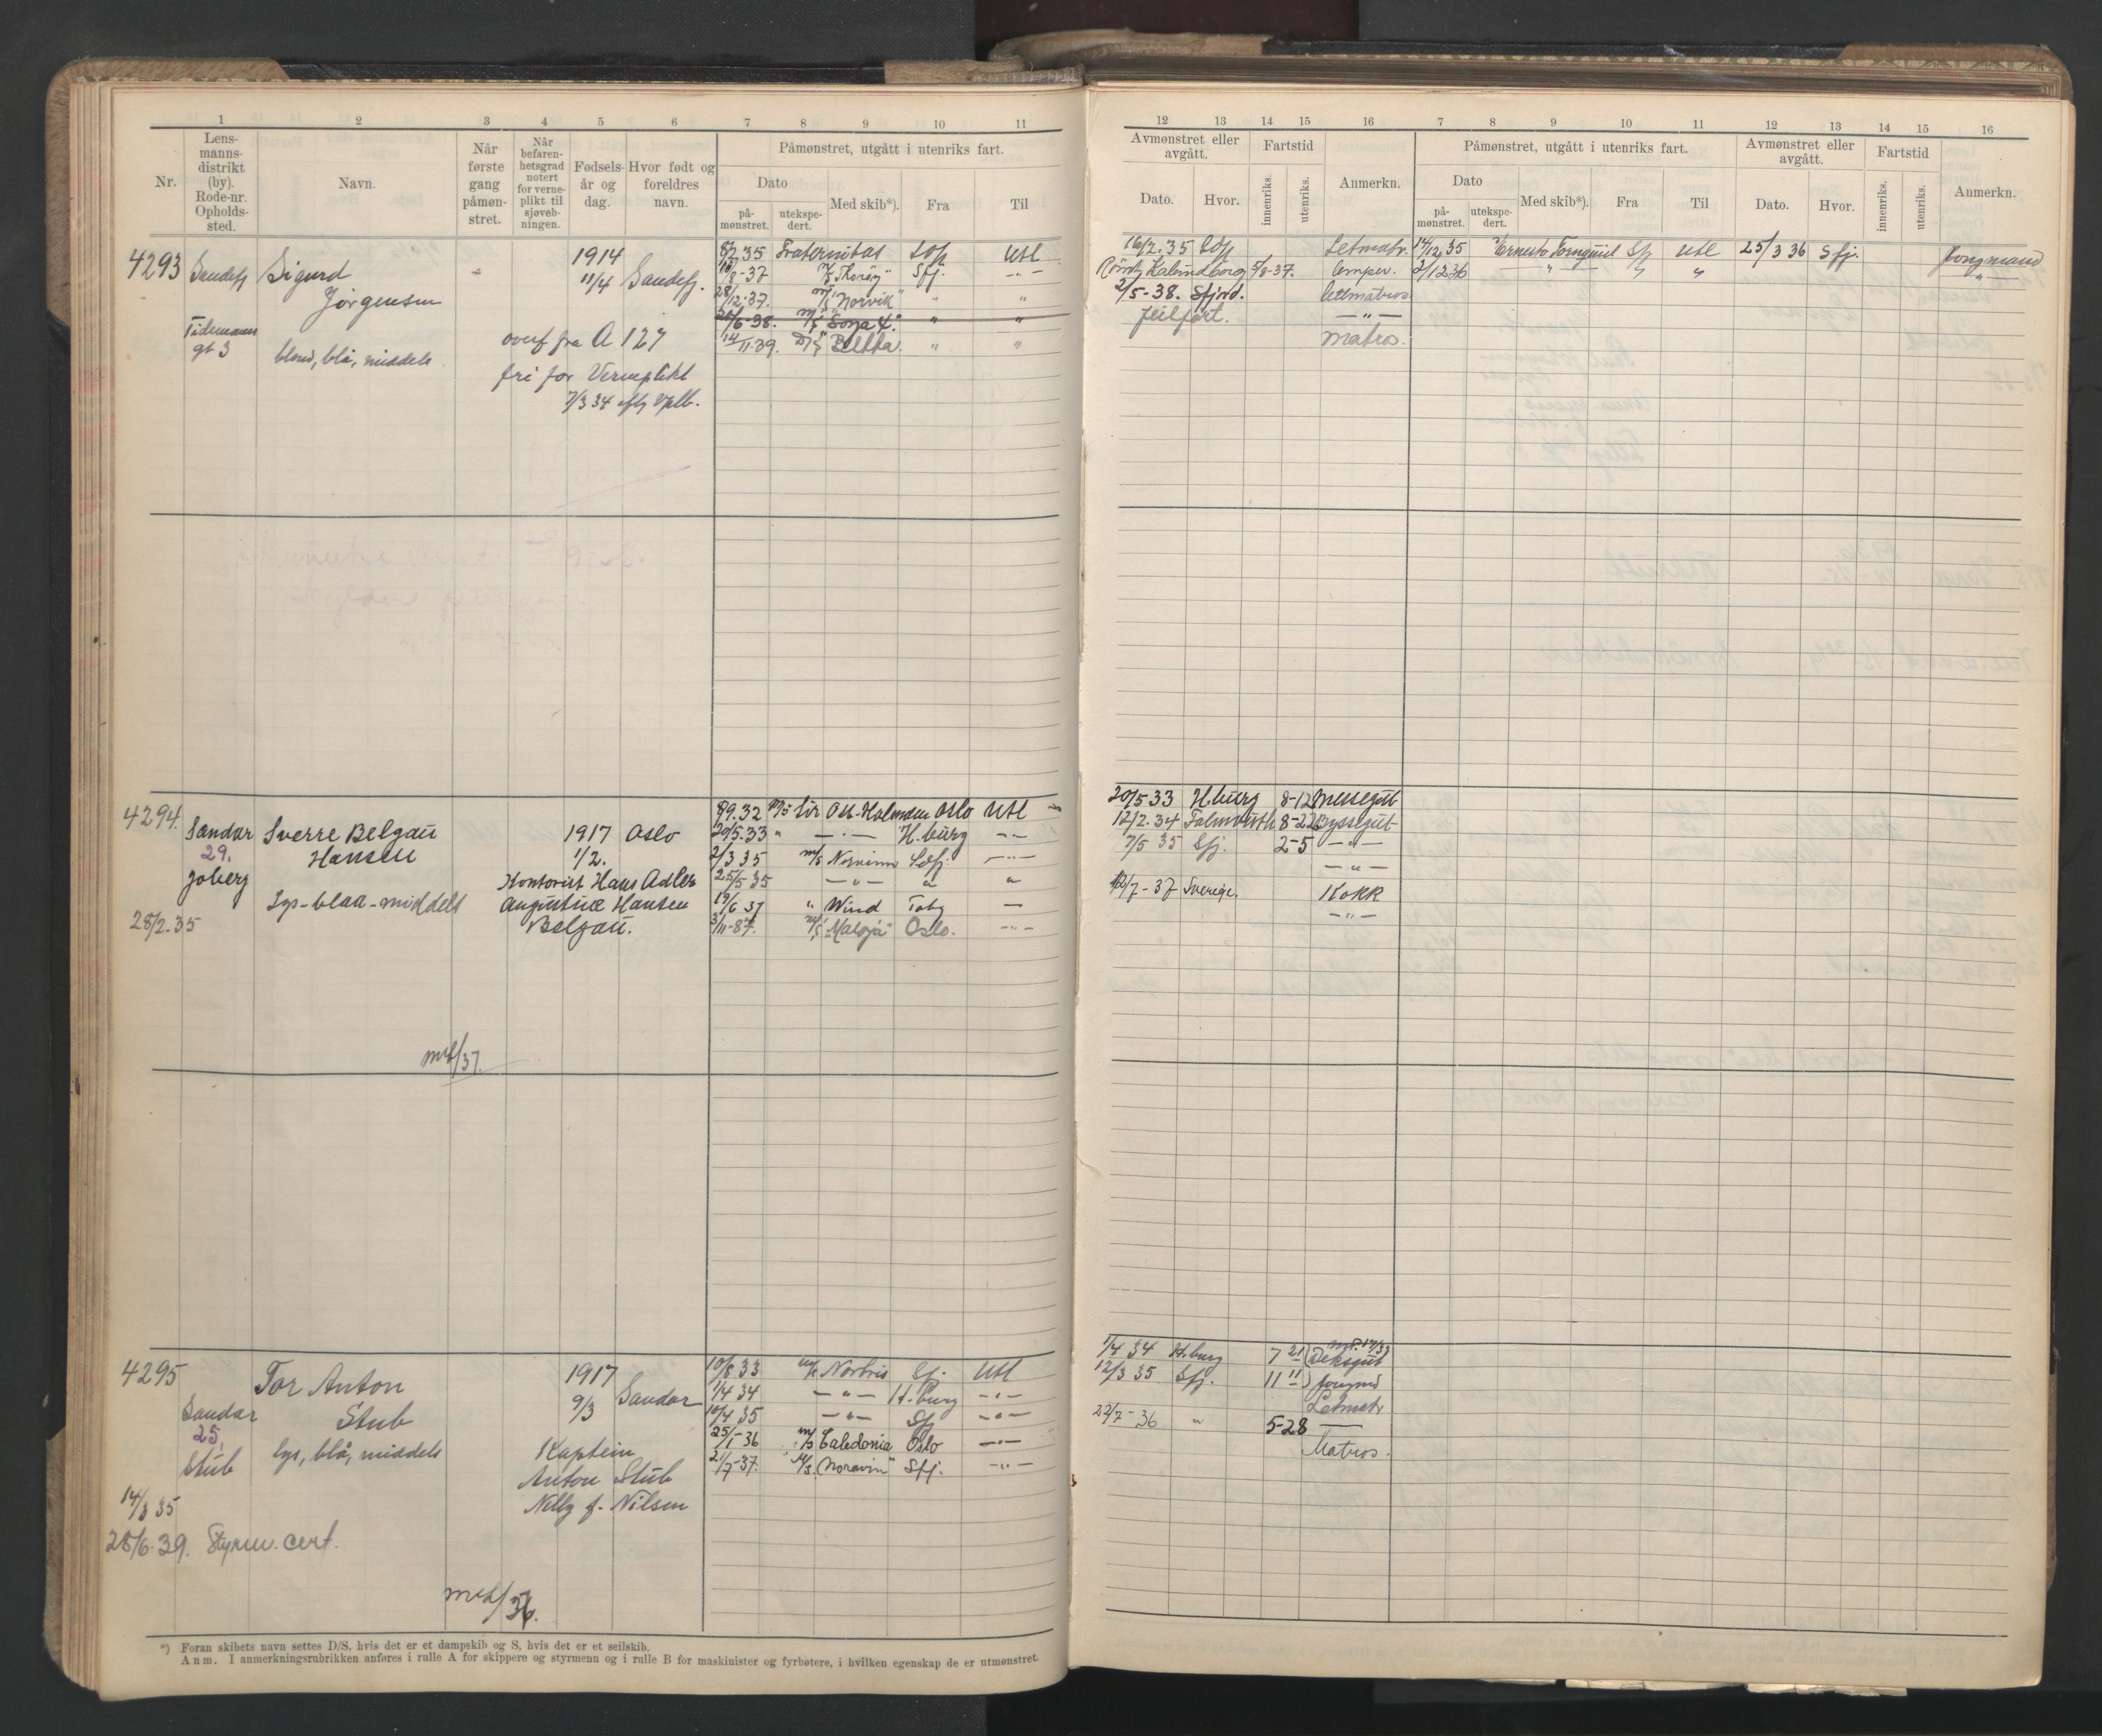 1 2 3 4 5 6 7 8 9 10 11
Nr. Lens-manns-distrikt (by). Rode-nr. Opholds-sted. Navn. Når første gang påmøn-stret. Når befaren-hetsgrad notert for verne-plikt til sjøvebningen. Fødsels-år og dag. Hvor født og foreldres navn. Påmønstret, utgått i utenriks fart.
Dato Med skib*). Fra Til
på-mønstret. utekspe-dert.
4293 Sandefj Sigurd 1914
Jörgensen 11/4 Sandefj.
Tidemanns
gt 3 blond, blå, middels
overf fra A 127
fri for Verneplikt
7/3 34 eflg Vplb.
8/2.35 Fraternitas Utl
/8-37 "Thoröy" Sfj. -"-
28/12-37. "Norvik" " "
/6-38. "Sonja 4." " "
14/11.39. D/S " "
4294. Sandar Sverre Belgau 1917 Oslo
29. Hansen 1/2.
Joberg Kontorist Hans Adler
Lys-blaa-middels Augustine Hansen
28/2.35 Belgau.
mrk/37.
8/9.32 Oslo Utl
20/5.33 " -"- H.burg -"-
2/3 35 m/s Norvinn -"-
25/5 35 -"- " "
/6 37 " Wind
/11-37. "Maloja" Oslo. -"-
4295 Tor Anton 1917
Sandar Stub 9/3 Sandar
25. lys, blå, middels Kaptein
Stub Anton Stub
Nelly f. Nilsen
14/3 35
28/6.39. Styrm. cert.
mrk/36.
10/8 33 Norbris Sfj. Utl
1/4 34 -"- H.burg -"-
10/4 35 -"- Sfj -"-
25/1-36 m/s Caledonia Oslo -"-
21/7-37. M/S. "Noravin" Sfj. -"-
*) Foran skibets navn settes D/S, hvis det er et dampskib og S, hvis det er et seilskib.
Anm. I anmerkningsrubrikken anføres i rulle A for skippere og styrmenn og i rulle B for maskinister og fyrbøtere, i hvilken egenskap de er utmønstret.
12 13 14 15 16 7 8 9 10 11 12 13 14 15 16
Avmønstret eller avgått. Fartstid Anmerkn. Påmønstret, utgått i utenriks fart. Avmønstret eller avgått. Fartstid Anmerkn.
Dato. Hvor. innenriks. utenriks. Dato Med skib*). Fra Til Dato. Hvor. innenriks. utenriks.
på-mønstret. utekspe-dert.
16/2.35 Letmatr. 14/12 35 Ernesto Tornquist Sfj Utl 25/3 36 Sfj. Jungmand
Kalundborg 5/8-37. 2/12 36 " " " "
2/5-38. Sfjord. Lettmatros.
feilført. -"-
matros.
20/5 33 H.burg 8-12 Messegut
12/2.34 Falmouth Byssegut
7/5 35 Sfj. 2-5 -"-
-"-
/7-37 Sverige. Kokk
-"-
1/4 34 H.burg 7 21 Deksgut
12/3 35 Sfj. 11 11 jungmd
Letmatr
22/7-36 " 5-28 -
Matros.